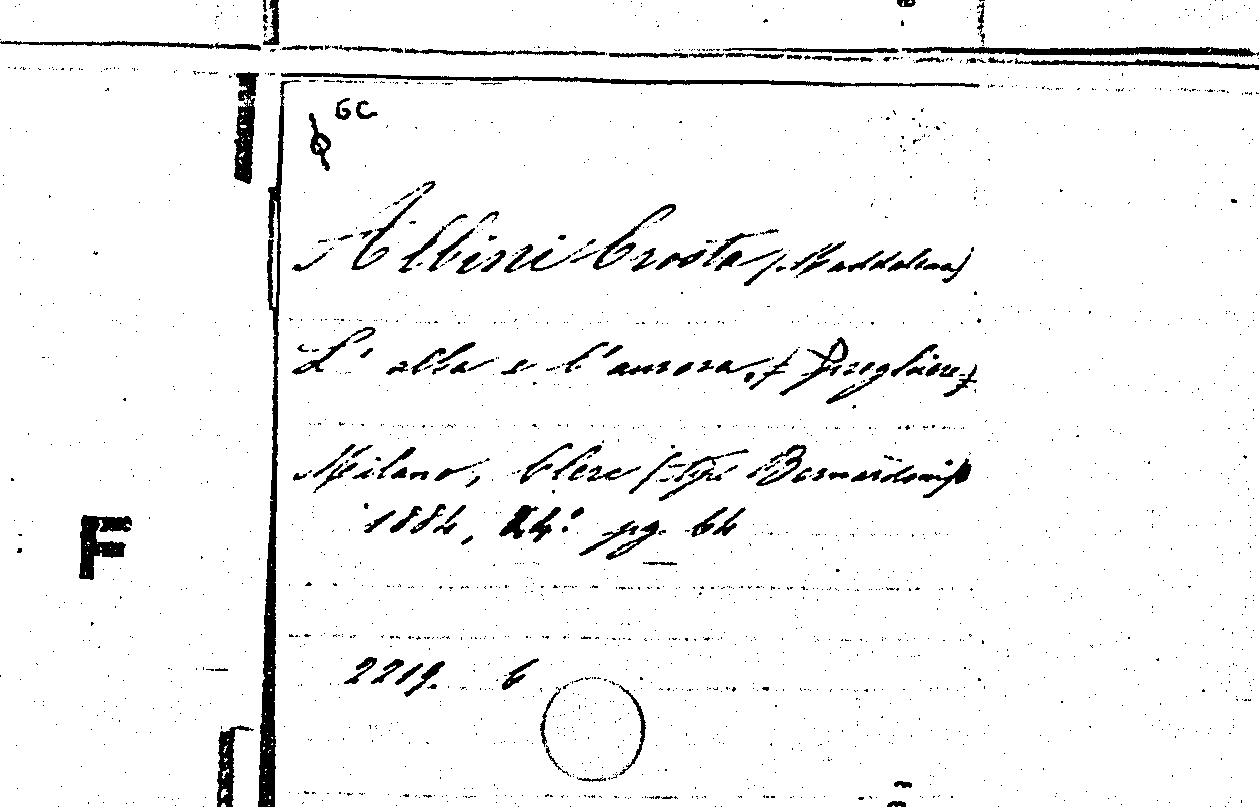 GC
Albini Crosta (Maddalena)
L'alba e l'aurora. (Preghiere)
Milano, Clerc (tip. Bernardoni)
1884, 24° pg. 64
2219. 6